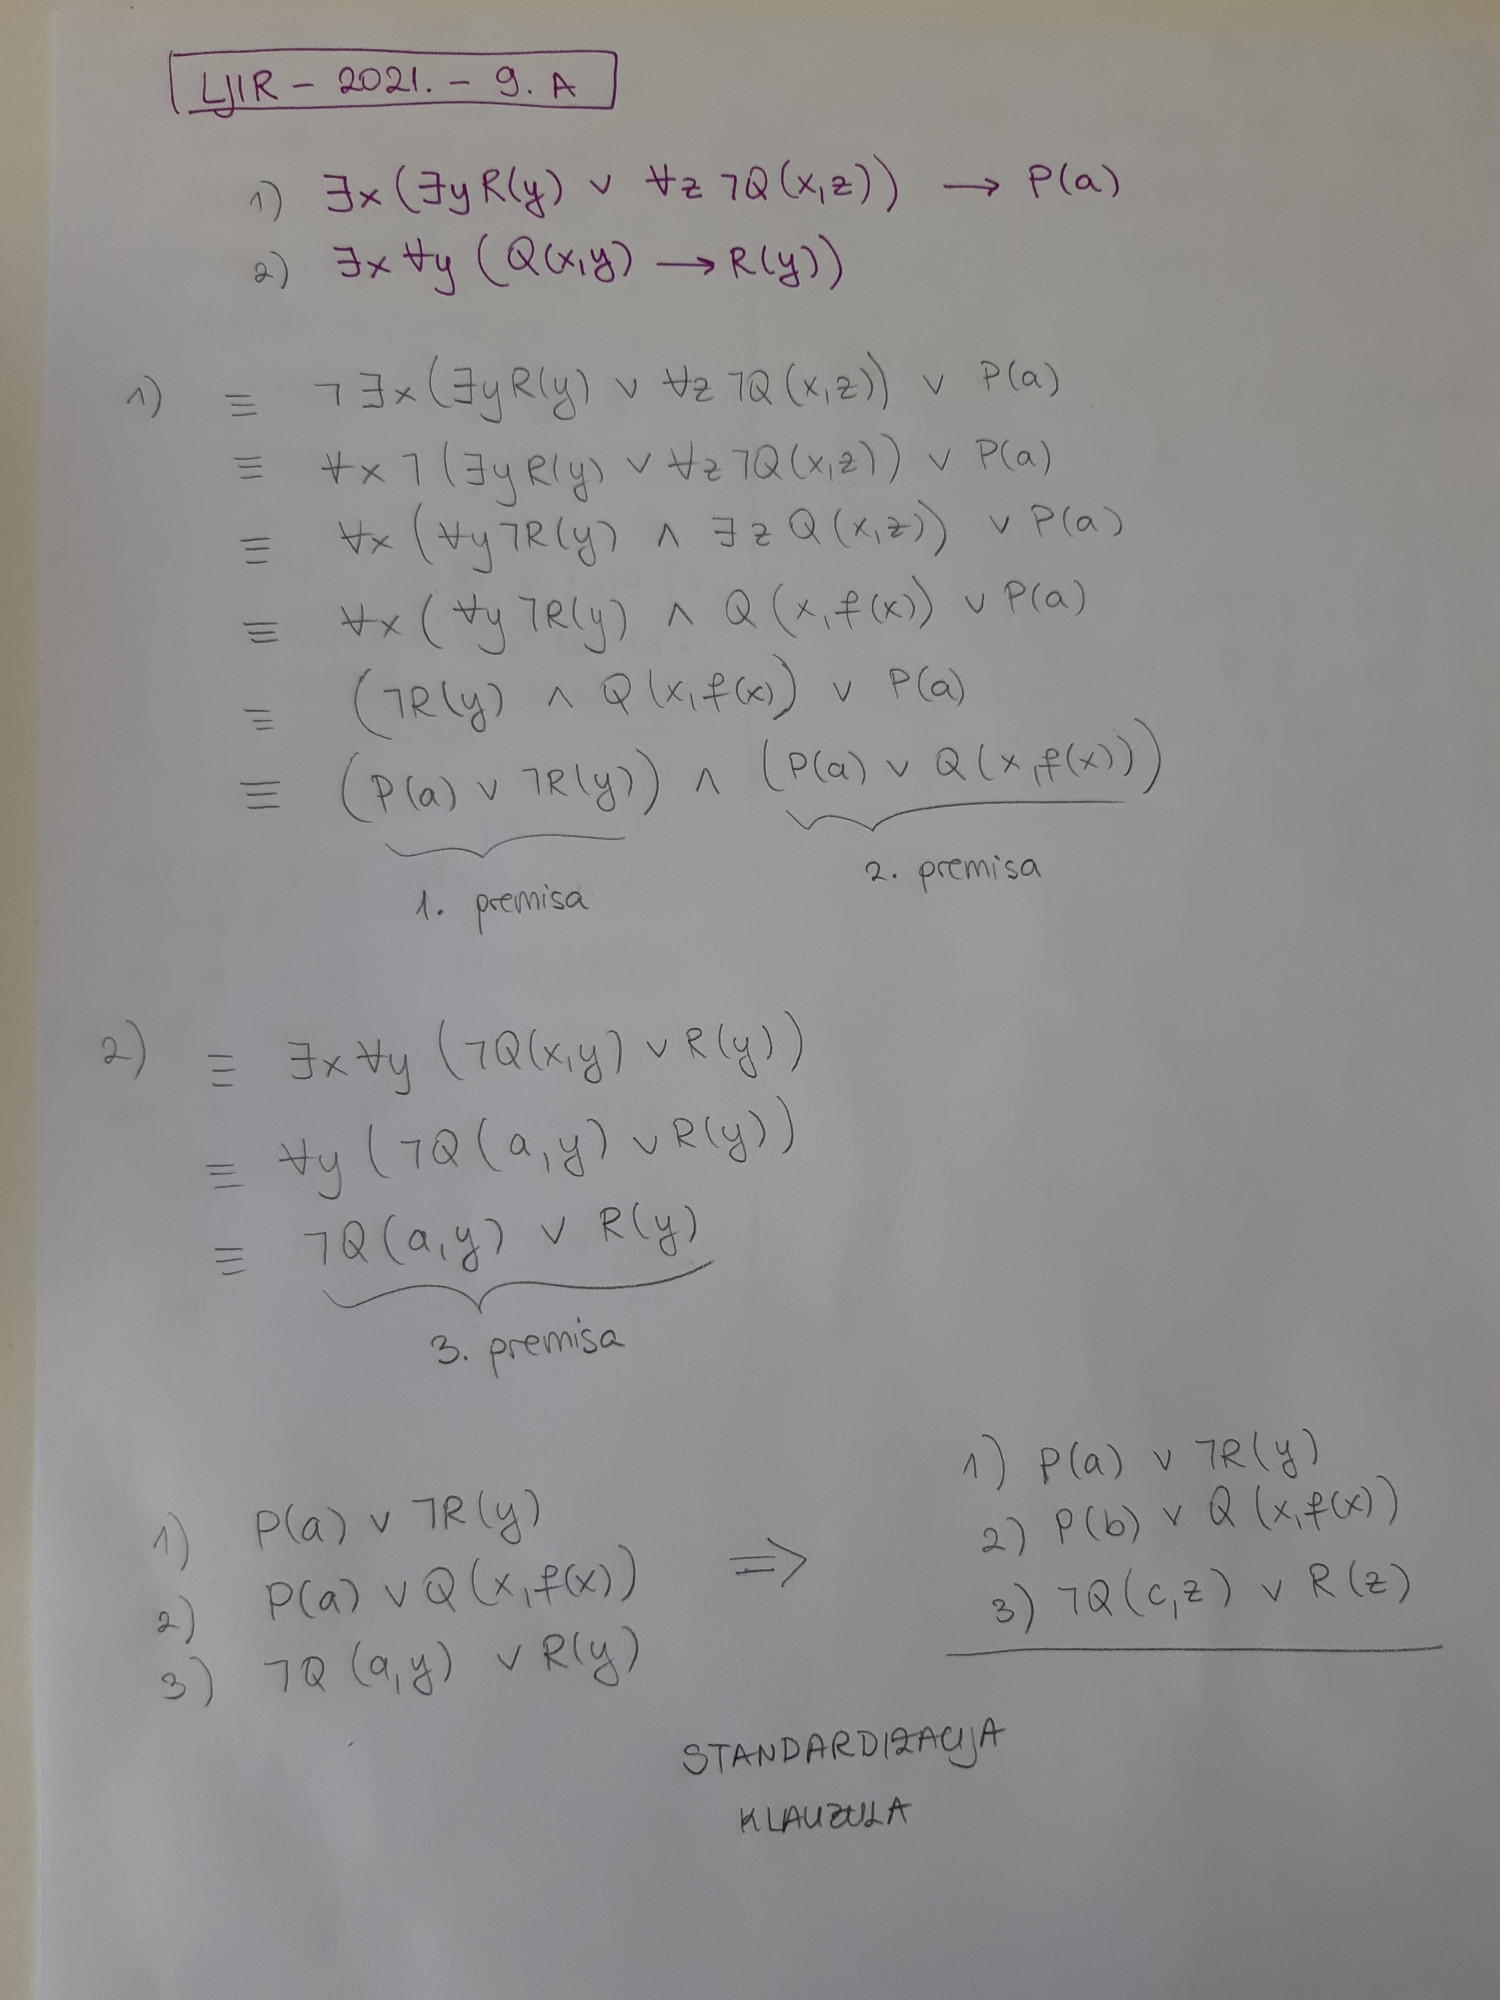 LJIR - 2021. - 9. A
1) ∃x(∃yR(y) ∨ ∀z ¬Q(x,z)) → P(a)
2) ∃x ∀y (Q(x,y) → R(y))
1) ≡ ¬∃x(∃yR(y) ∨ ∀z ¬Q(x,z)) ∨ P(a)
≡ ∀x ¬(∃yR(y) ∨ ∀z ¬Q(x,z)) ∨ P(a)
≡ ∀x (∀y ¬R(y) ∧ ∃z Q(x,z)) ∨ P(a)
≡ ∀x (∀y ¬R(y) ∧ Q(x,f(x)) ∨ P(a)
≡ (¬R(y) ∧ Q(x,f(x)) ∨ P(a)
≡ (P(a) ∨ ¬R(y)) ∧ (P(a) ∨ Q(x,f(x)))
1. premisa 2. premisa
2) ≡ ∃x ∀y (¬Q(x,y) ∨ R(y))
≡ ∀y (¬Q(a,y) ∨ R(y))
≡ ¬Q(a,y) ∨ R(y)
3. premisa
1) P(a) ∨ ¬R(y)
2) P(a) ∨ Q(x,f(x))
3) ¬Q(a,y) ∨ R(y)
⇒
1) P(a) ∨ ¬R(y)
2) P(b) ∨ Q(x,f(x))
3) ¬Q(c,z) ∨ R(z)
STANDARDIZACIJA
KLAUZULA